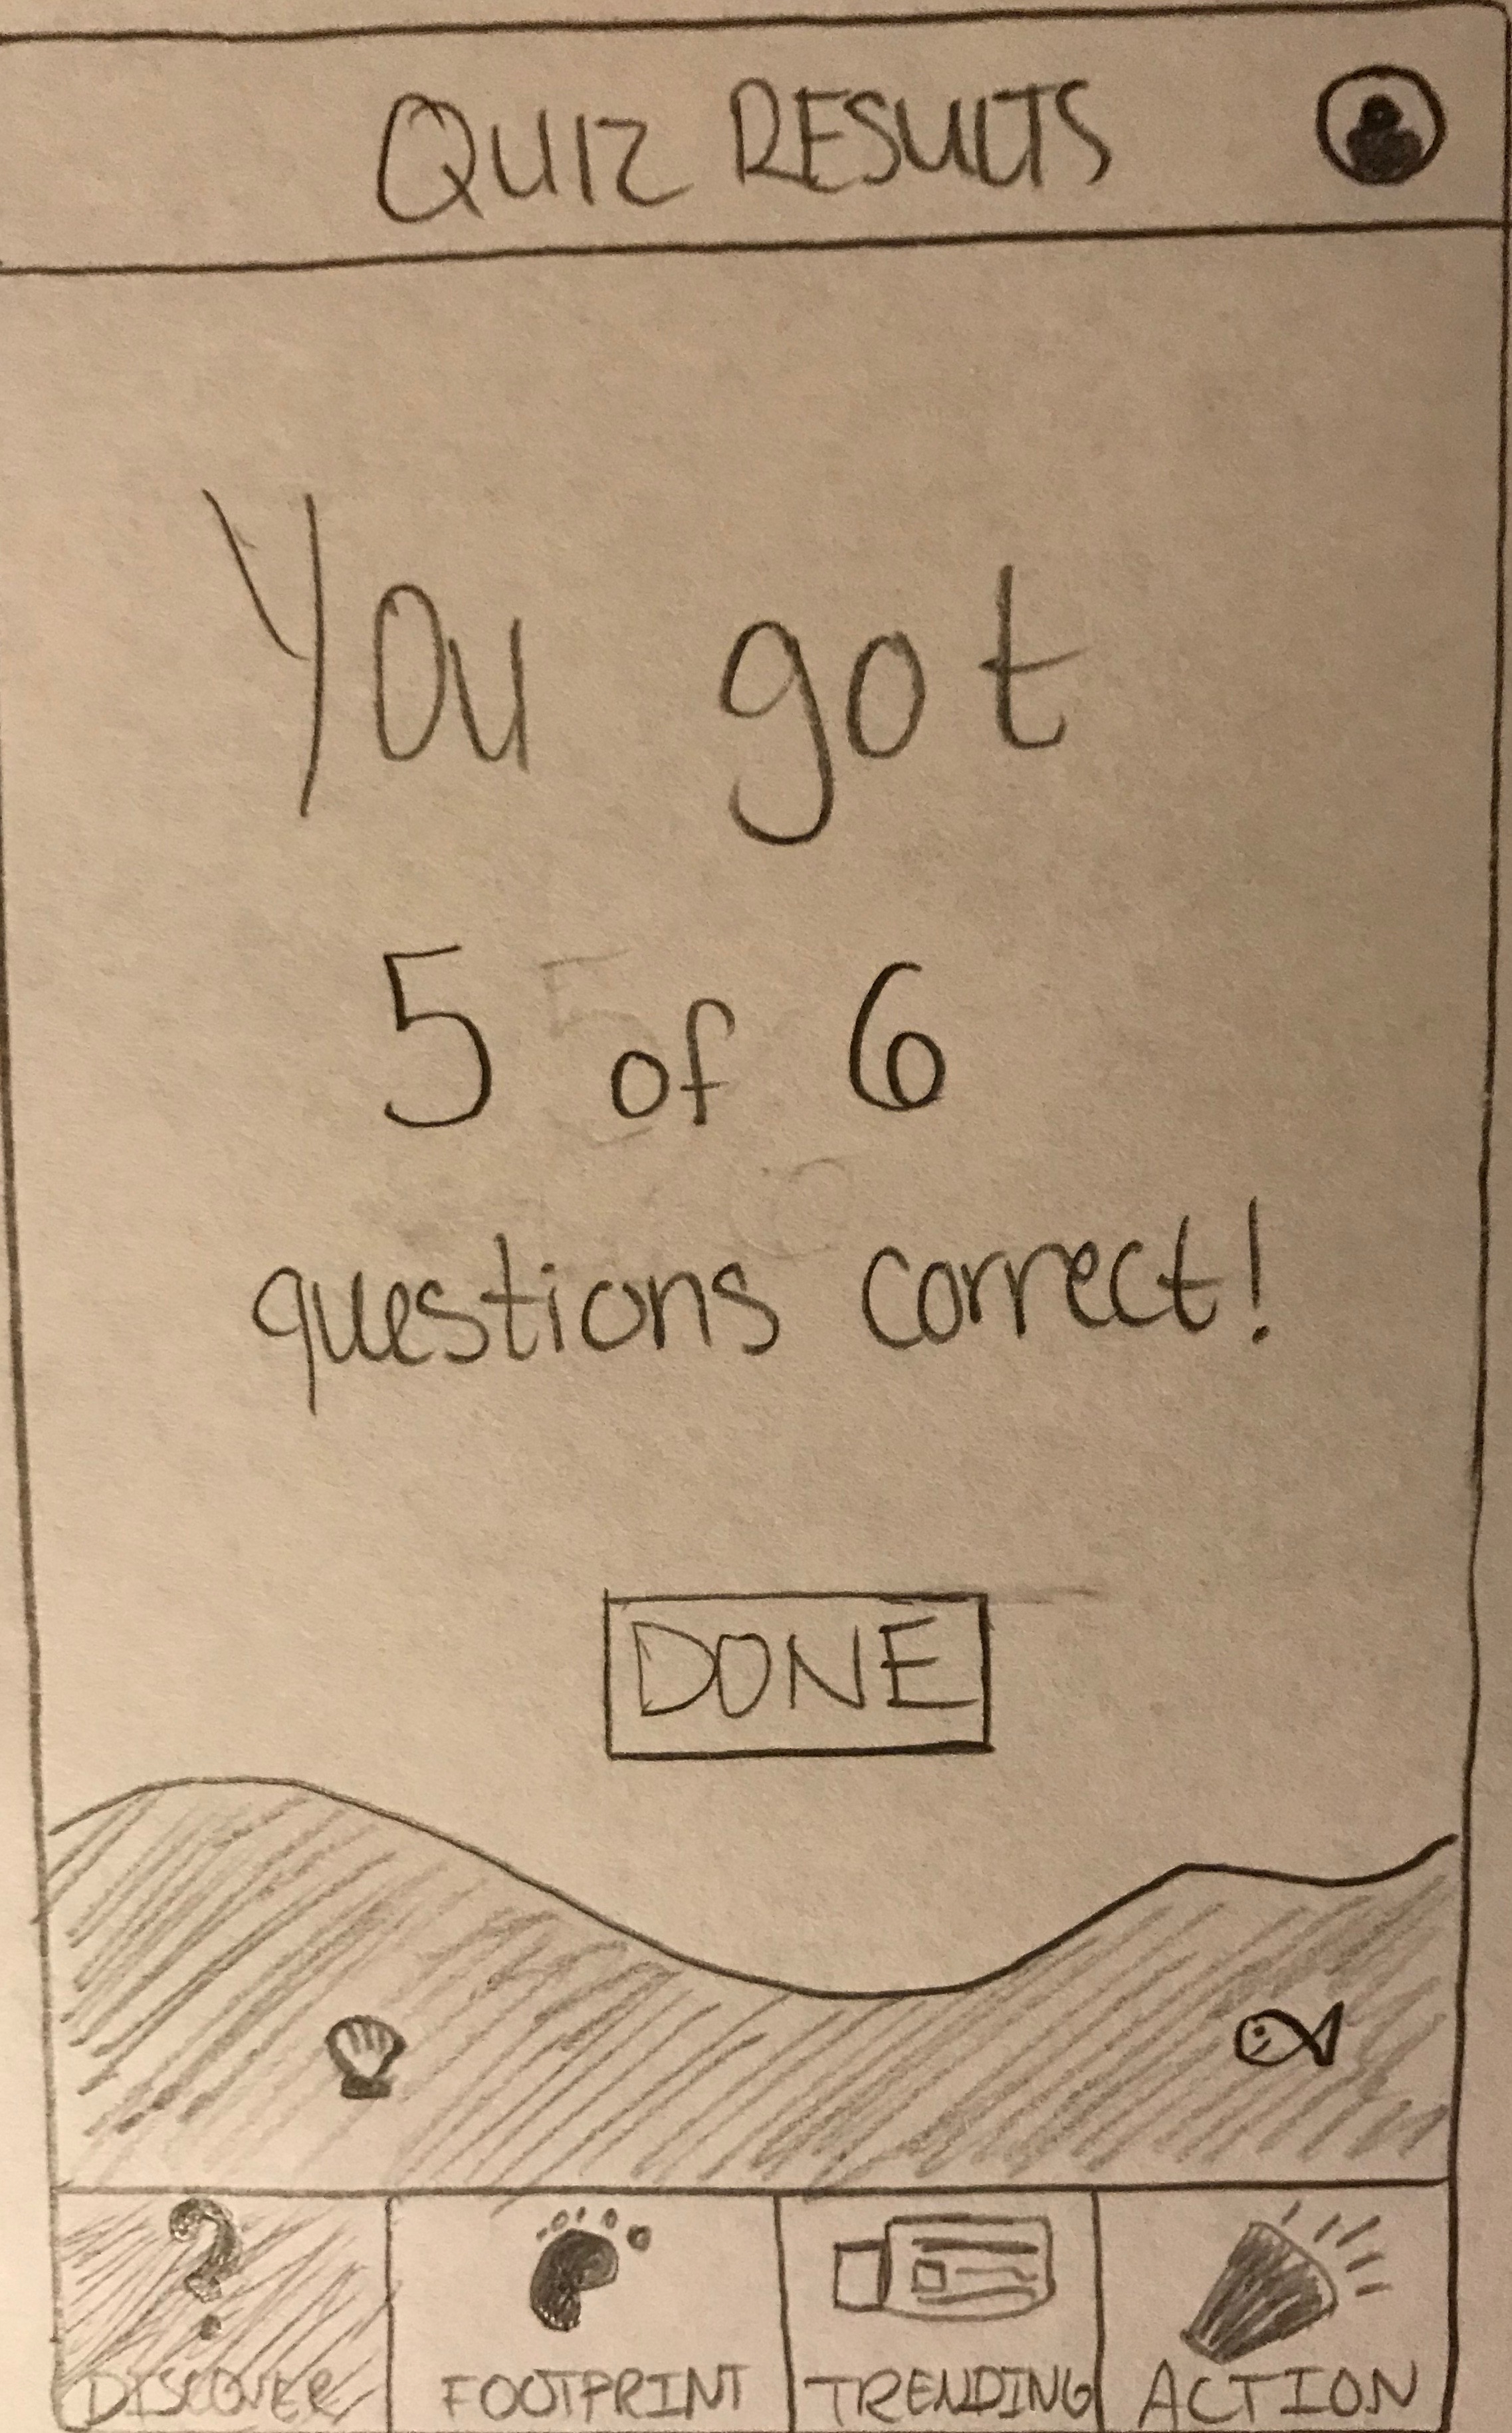 QUIZ RESULTS
You got
5 of 6
questions correct!
DONE
?
DISCOVER FOOTPRINT TRENDING ACTION